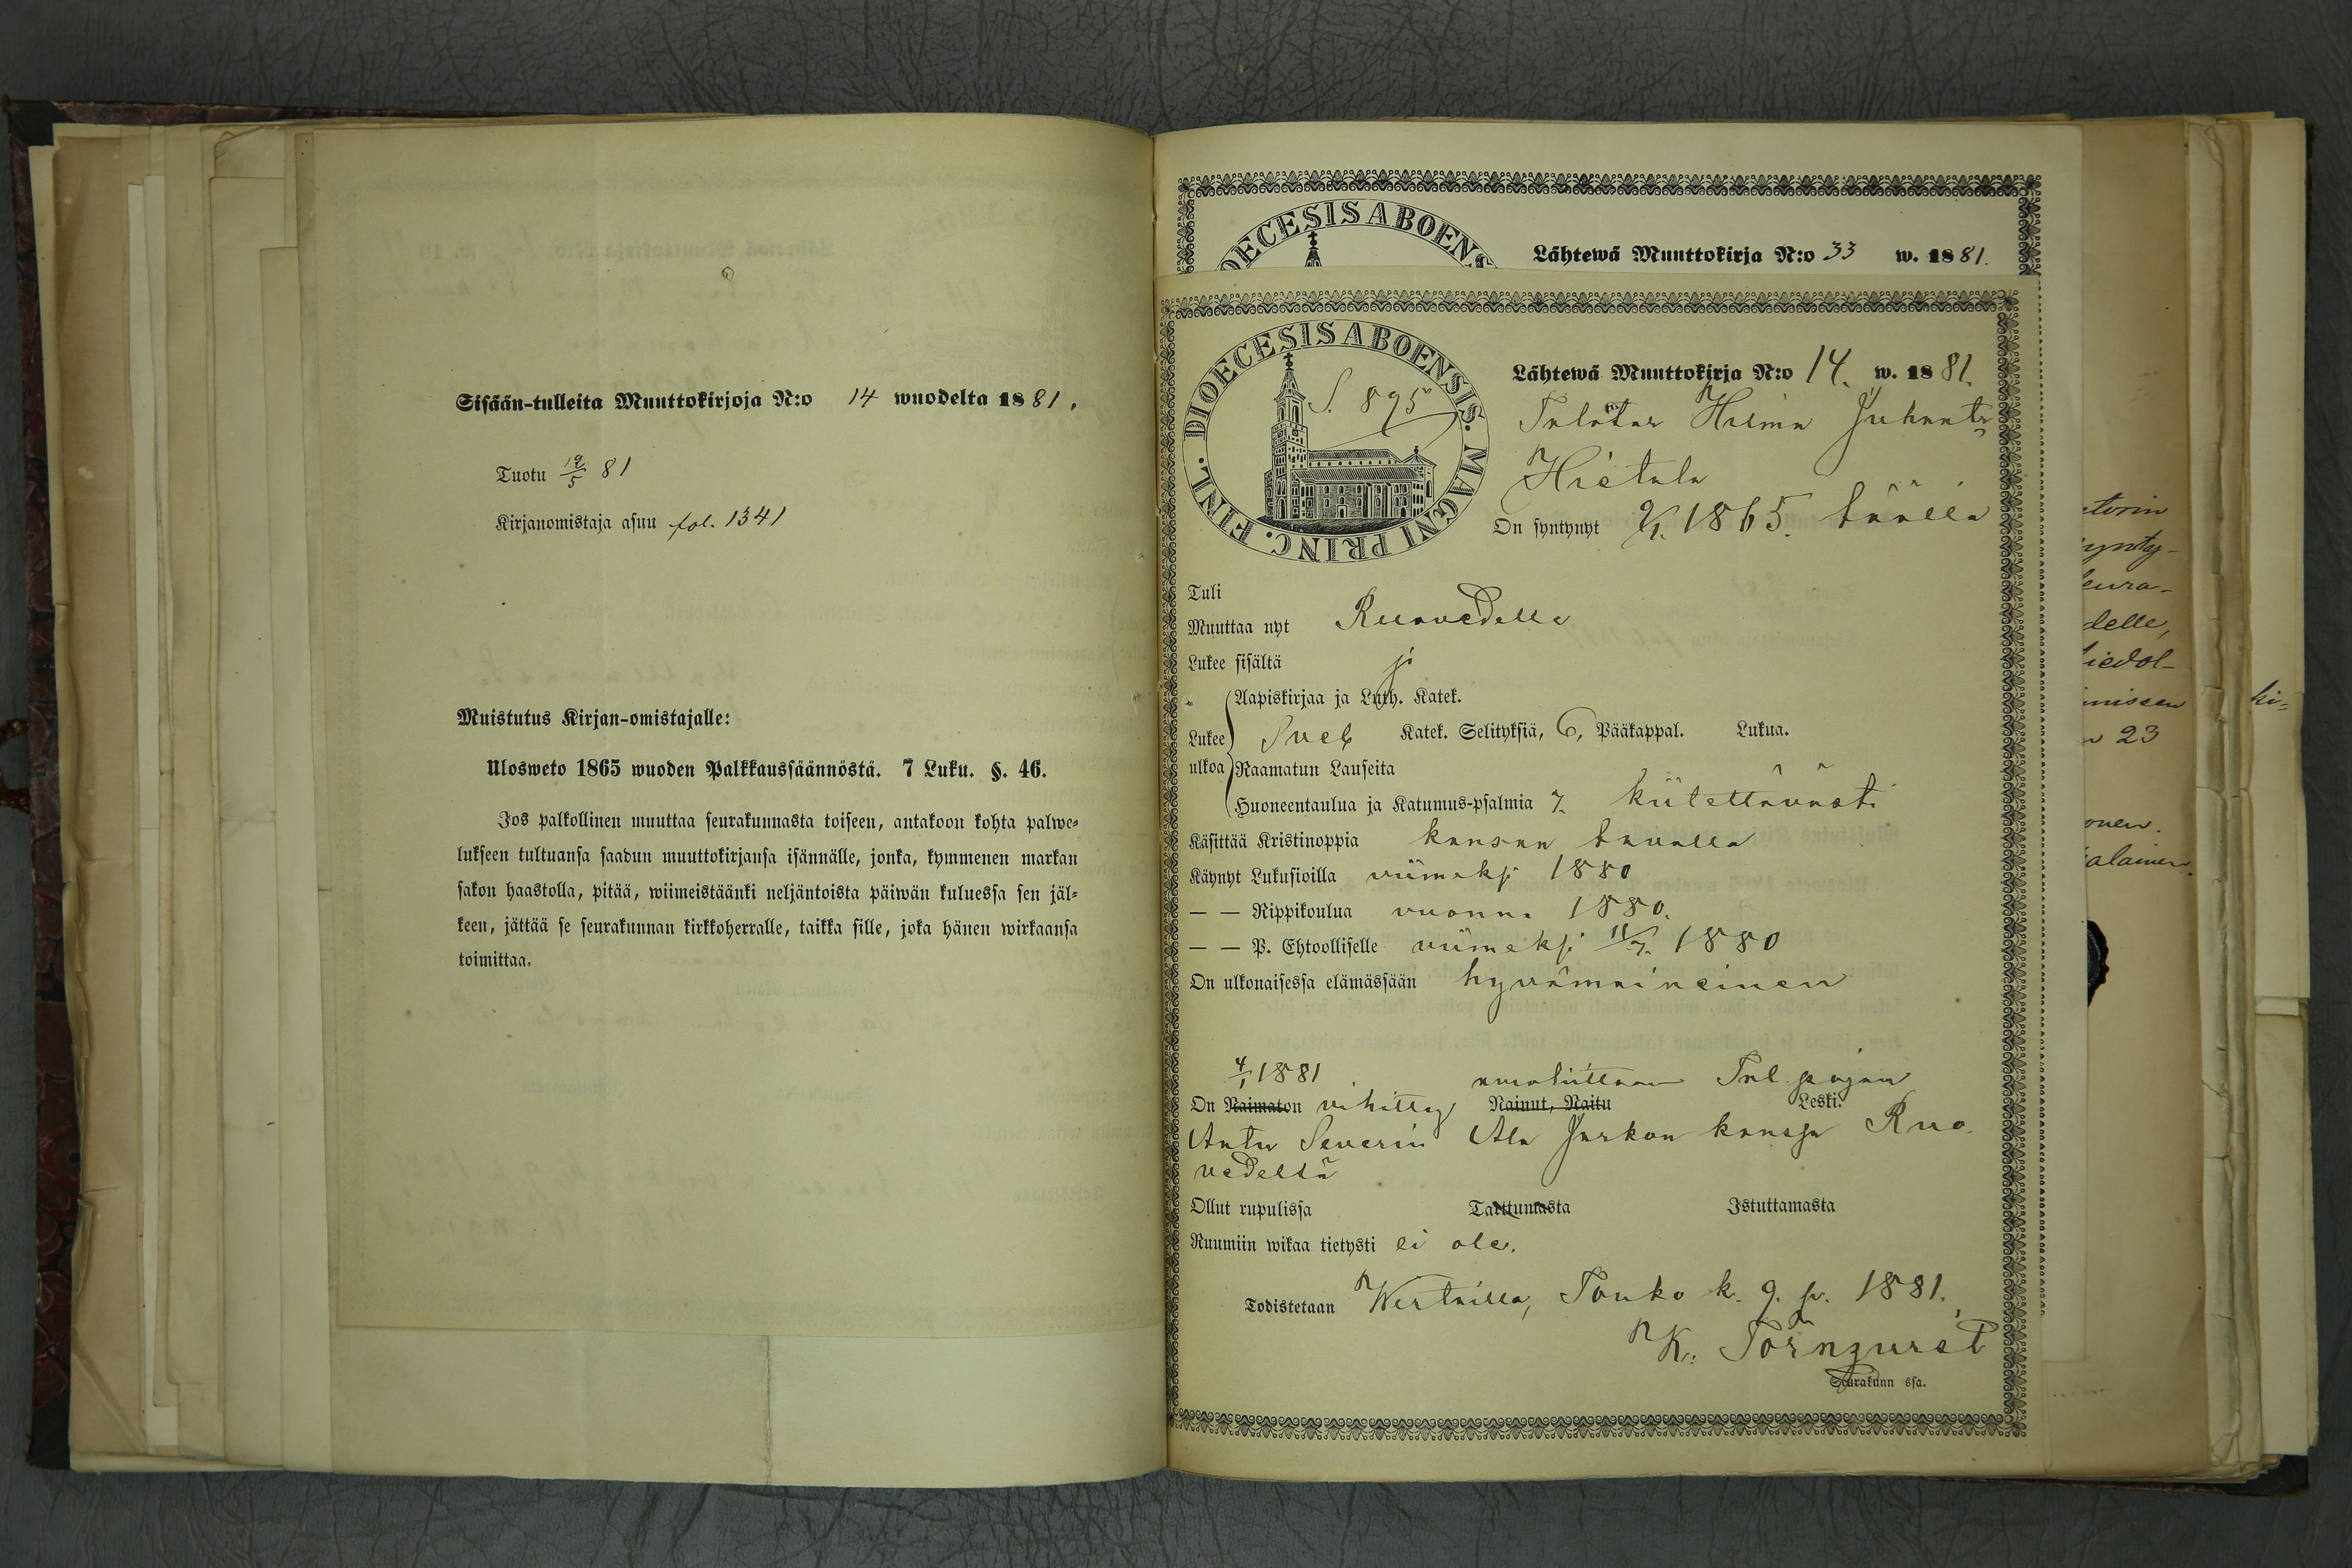 Sisään-tulleita Muuttokirjoja N:o 14 wuodelta 1881.
Tuotu 19/5 81
Kirjanomistaja asuu fol. 1341
Muistutus Kirjan-omistajalle:
Ulosweto 1865 wuoden Palkkaussäännöstä. 7 Luku. §. 46.
Jos palkollinen muuttaa seurakunnasta toiseen, antakoon kohta palwe-
lukseen tultuansa saadun muuttokirjansa isännälle, jonka, kymmenen markan
sakon haastolla, pitää, wiimeistäänki neljäntoista päiwän kuluessa sen jäl-
keen, jättää se seurakunnan kirkkoherralle, taikka sille, joka hänen wirkaansa
toimittaa.
DIOECESIS ABOENS
Lähtewä Muuttokirja N:o 33 w. 1881.
DIOECESIS ABOENSIS. MAGNI PRINC. FINL.
S. 895
Lähtewä Muuttokirja N:o 14. w. 1881.
Talotar Hilma Juhant:r
Hietala
On syntynyt 1865. täällä
Tuli
Muuttaa nyt Ruovedelle
Lukee sisältä ja
Aapiskirjaa ja Luth. Katek.
Lukee ulkoa Sveb Katek. Selityksiä, 6, Pääkappal. Lukua.
Raamatun Lauseita
Huoneentaulua ja Katumus-psalmia 7. kiitettävästi
Käsittää Kristinoppia kansan tavalla
Käynyt Lukusioilla viimeksi 1880
— — Rippikoulua vuonna 1880.
— — P. Ehtoolliselle viimeksi 11/7. 1880
On ulkonaisessa elämässään hyvämaineinen
4/1 1881 avioliittoon Tal. pojan
On Naimaton vihitty Nainut, Naitu Leski.
Antu Severin Ala Jaskon kanssa Ruo-
vedeltä
Ollut rupulissa Tarttumasta Istuttamasta
Ruumiin wikaa tietysti ei ole.
Todistetaan Wirtailla, Touko k. 9. p. 1881.
K. Törnqvist
Seurakunn ssa.
etorin
synty-
seura-
delle,
n 23
onen.
alainen.
hi-